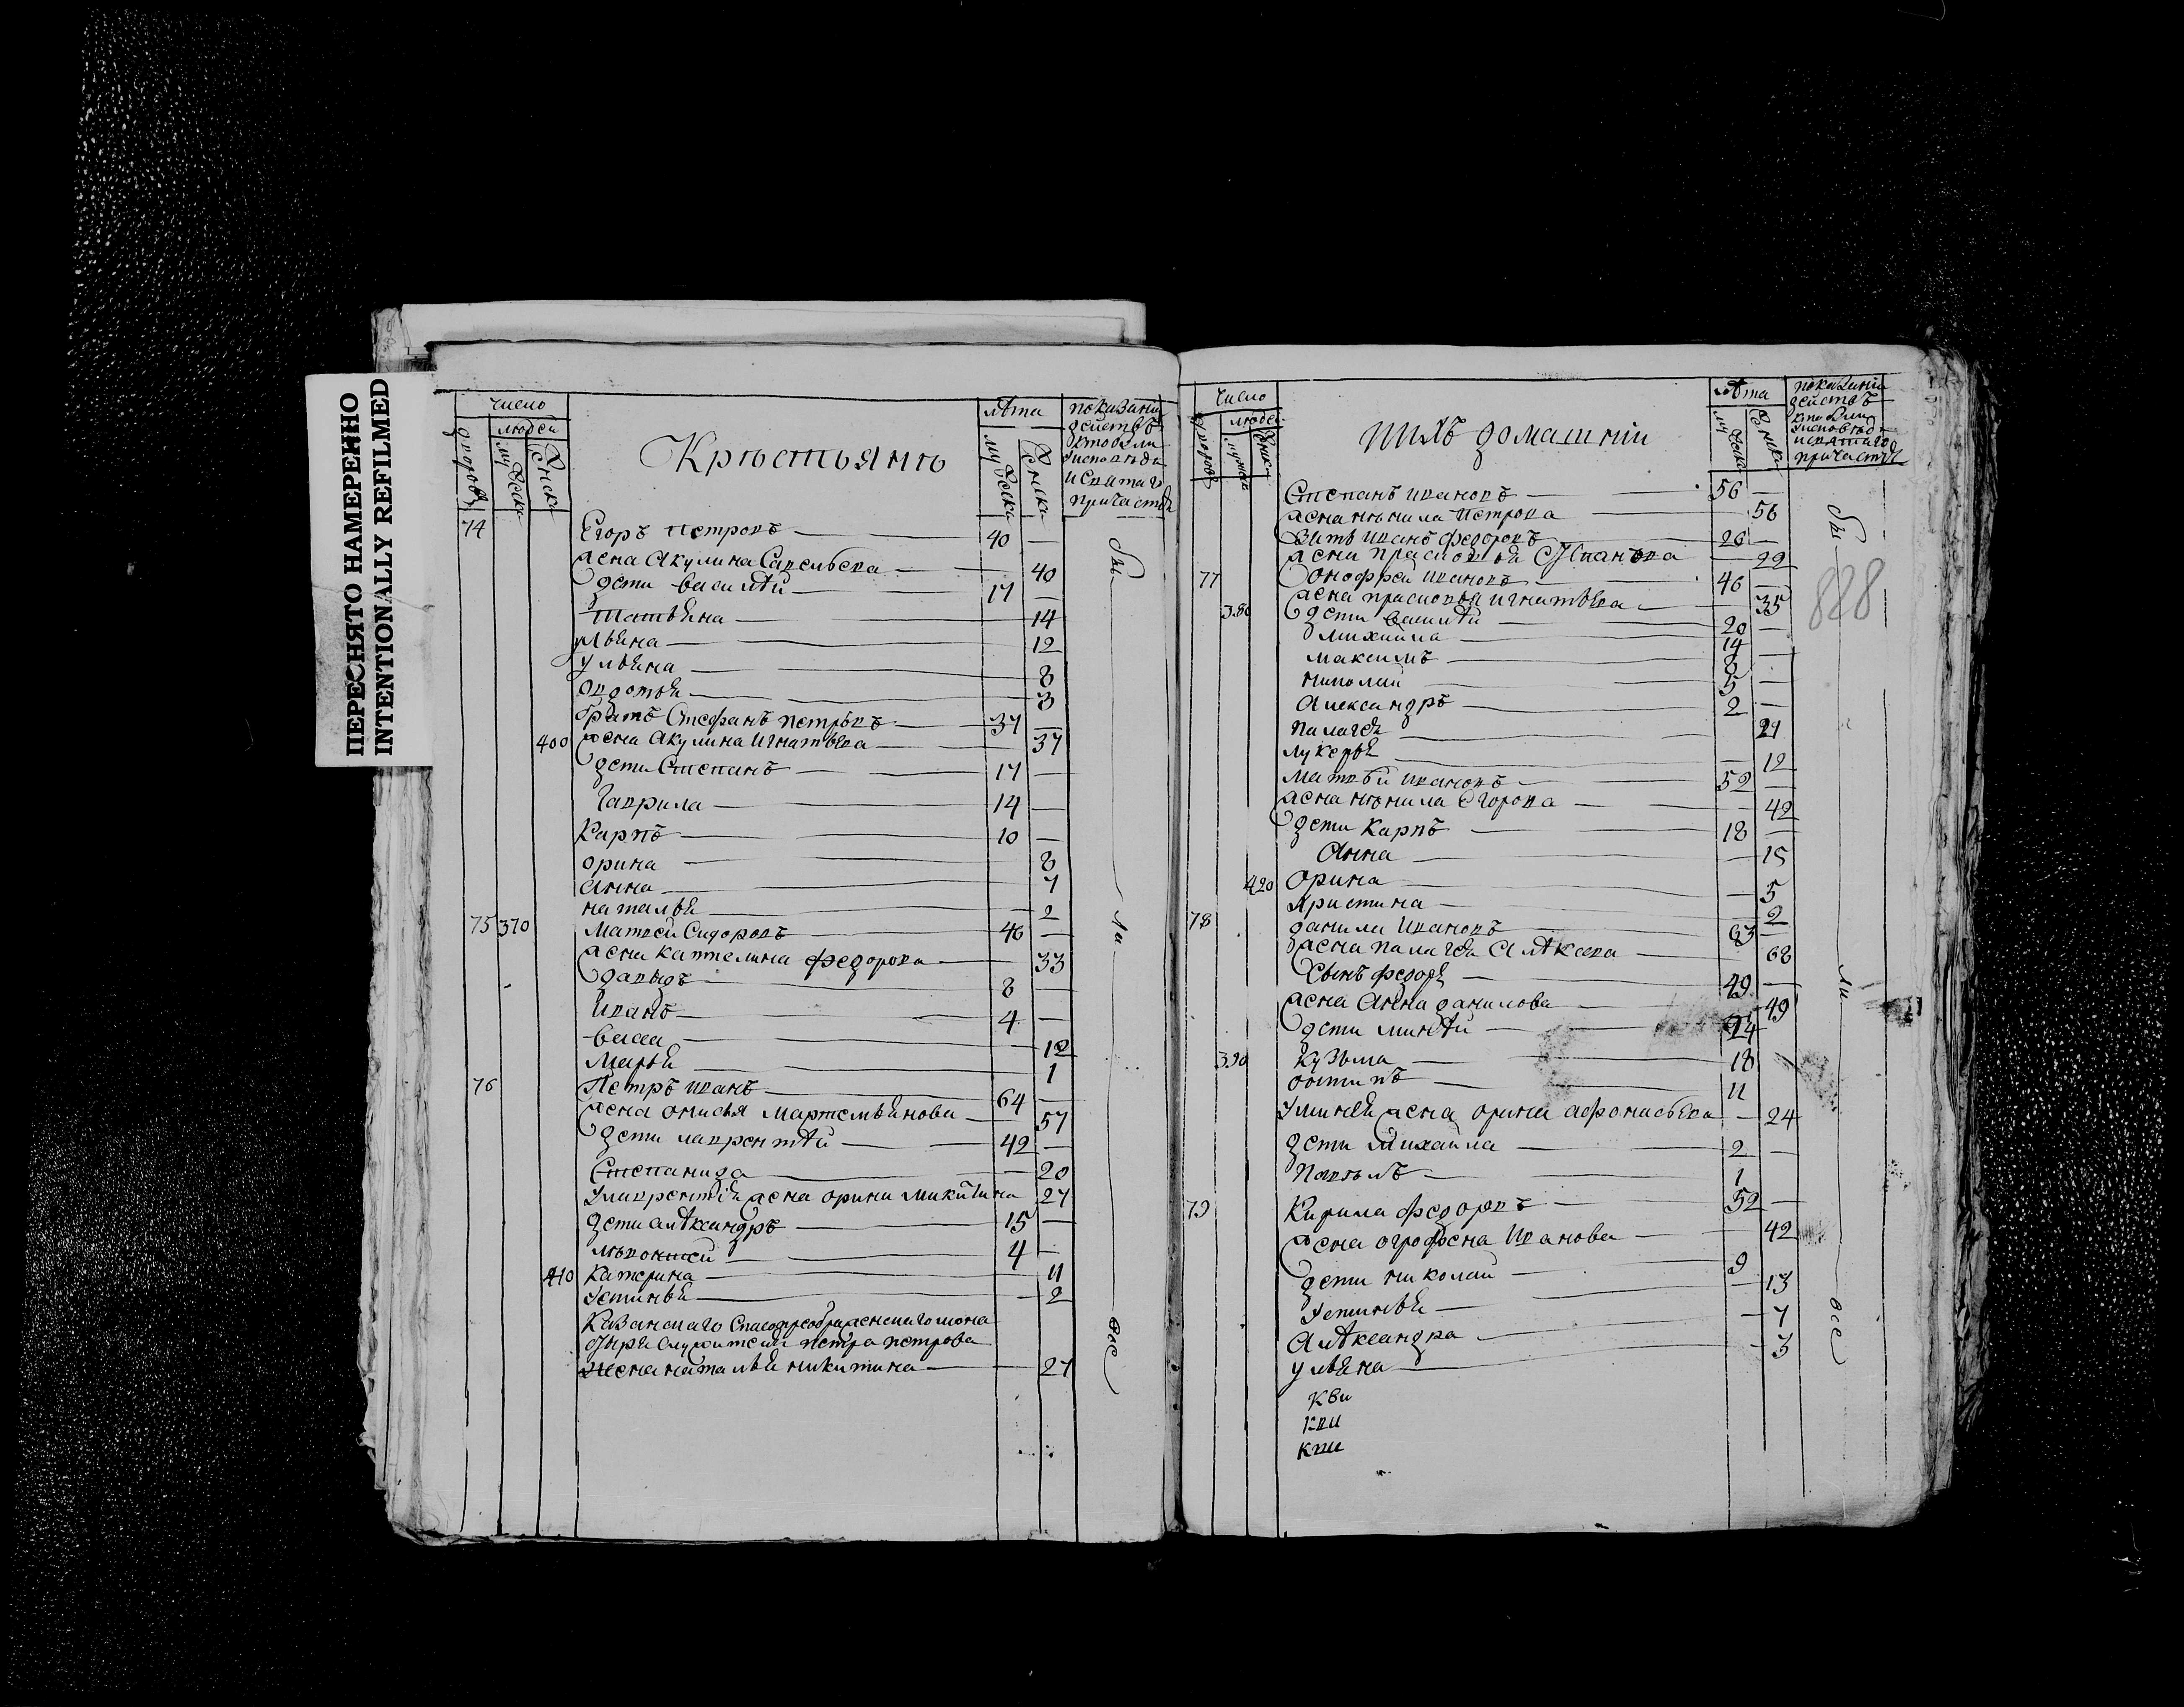 ПЕРЕСНЯТО НАМЕРЕННО
INTENTIONALLY REFILMED
число
дворовъ
людей
мужеска
женска
Кръстьянъ
лѣта
мужеска
женска
показание
действъ
кто были
уисповѣди
исвятаго
причастия
74 Егоръ петровъ 40
жена Акулина Савельева 40
дети василѣй 17
татьяна 14
ульяна 8
овдотья 3
братъ Стефанъ петровъ 37
400 жена Акулина Игнатьева 37
дети Степанъ 17
Гаврила 14
Карпъ 10
орина 8
анна 7
наталья 2
75 370 Матвей Сидоровъ 46
жена каптелина федорова 33
давыдъ 8
Иванъ 4
васса 12
Марья 1
76 Петръ иванъ 64
жена онисья Мартемьянова 57
дети лаврентѣй 42
Степанида 20
Улаврентія жена орина Микитина 27
дети алѣксандръ 15
410 Катерина 11
Устинья 2
Казанскаго Спасопреображенскаго мона
стыря служителя петра петрова
Жена наталья никитина 27
бы
ли
все
число
дворовъ
людей
мужеска
женска
ихъ домашнии
лѣта
мужеска
женска
показания
действъ
кто были
уисповѣди
исвятаго
причастия
Степанъ ивановъ 56
жена ненила Петрова 56
Зять иванъ федоровъ 26
жена прасковья Степанова 29
77 Онофреи ивановъ 46
жена прасковья игнатьева 35
380 дети василѣй 20
михаила 14
максимъ 8
николаи 5
Александръ 2
палагея 21
лукерья 12
матвѣй ивановъ 52
жена ненила Егорова 42
дети карпъ 18
Анна 15
420 Орина 5
Христина 2
78 данила Ивановъ 63
жена палагея Алѣксеева 68
Сынъ федоръ 49
жена Анна данилова 49
дети минѣй 24
390 кузьма 18
оситпъ 11
Уминея жена орина афонасьева 24
дети Михаила 2
павѣлъ 1
79 Кирила федоровъ 52
жена огрофена Иванова 42
дети николаи 9
Устинья 13
Алѣксандра 7
ульяна 3
бы
ли
все
888